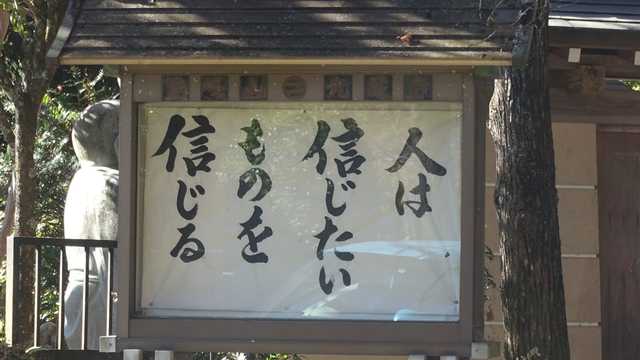 人は
信じたい
ものを
信じる